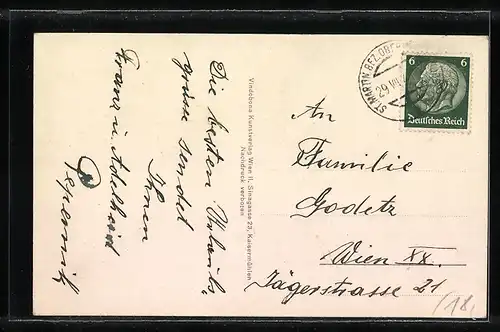 Die besten Urlaubs-
grüsse sendet
Ihnen
Franz u. Adelheid
Vindobona Kunstverlag Wien II, Sinagasse 23, Kaisermühlen
Nachdruck verboten
ST. MARTIN BEZ. OBER
29 VII
6 6
Deutsches Reich
An
Familie
Godetz
Wien XX.
Jägerstrasse 21
(18,